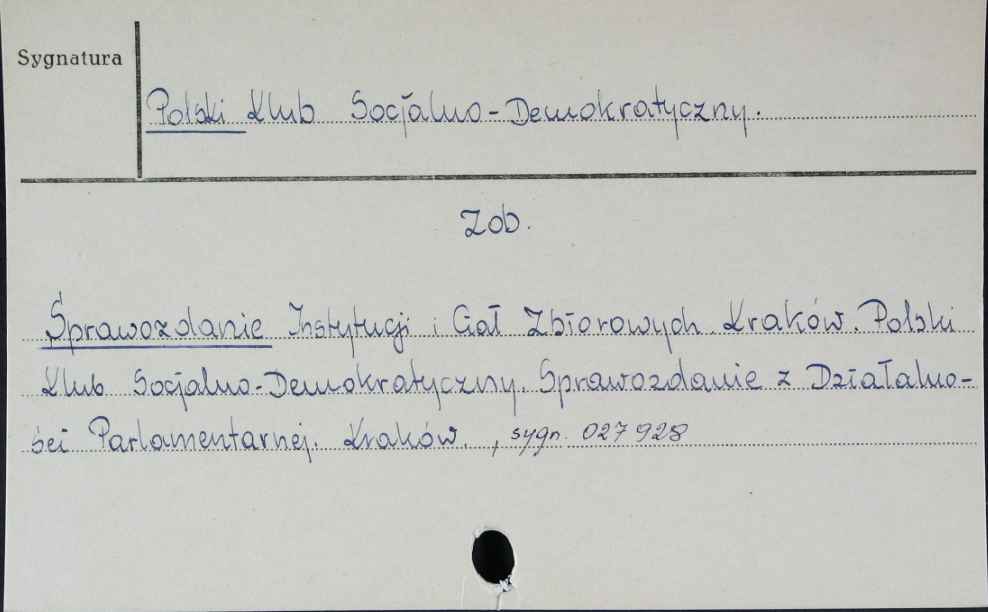 Sygnatura
Polski Klub Socjalno-Demokratyczny.
Zob.
Sprawozdanie Instytucji i Ciał Zbiorowych. Kraków. Polski
Klub Socjalno-Demokratyczny. Sprawozdanie z Działalno-
ści Parlamentarnej. Kraków. , sygn. 027928